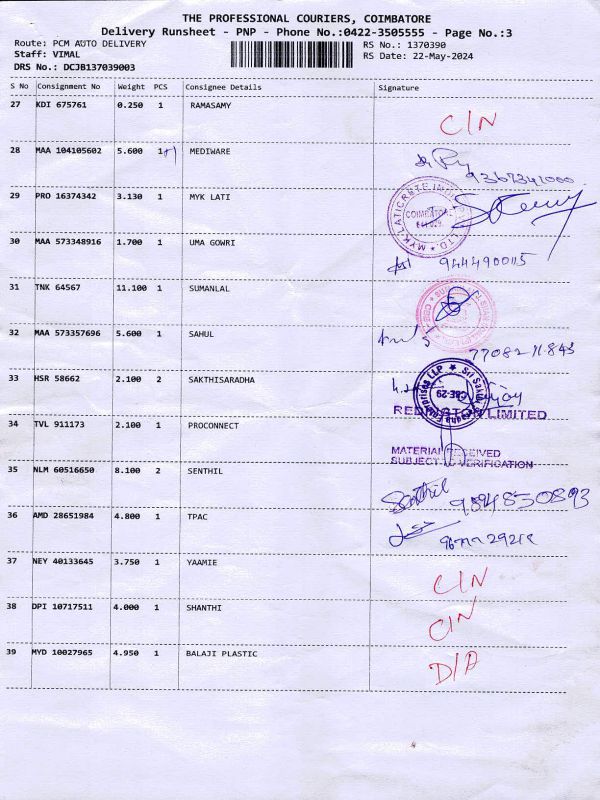 THE PROFESSIONAL COURIERS, COIMBATORE
Delivery Runsheet - PNP - Phone No.:0422-3505555 - Page No.:3
Route: PCM AUTO DELIVERY RS No.: 1370390
Staff: VIMAL RS Date: 22-May-2024
DRS No.: DCJB137039003
S No Consignment No Weight PCS Consignee Details Signature
27 KDI 675761 0.250 1 RAMASAMY C/N
28 MAA 104105602 5.600 1+1 MEDIWARE
29 PRO 16374342 3.130 1 MYK LATI MYK LATICRETE COIMBATORE LTD.
30 MAA 573348916 1.700 1 UMA GOWRI 9444900115
31 TNK 64567 11.100 1 SUMANLAL
32 MAA 573357696 5.600 1 SAHUL
33 HSR 58662 2.100 2 SAKTHISARADHA Enterprises LLP CBE-29
REDINGTON LIMITED
34 TVL 911173 2.100 1 PROCONNECT
MATERIAL RECEIVED
SUBJECT TO VERIFICATION
35 NLM 60516650 8.100 2 SENTHIL Senthil 9894850893
36 AMD 28651984 4.800 1 TPAC
37 NEY 40133645 3.750 1 YAAMIE C/N
38 DPI 10717511 4.000 1 SHANTHI C/N
39 MYD 10027965 4.950 1 BALAJI PLASTIC D/A